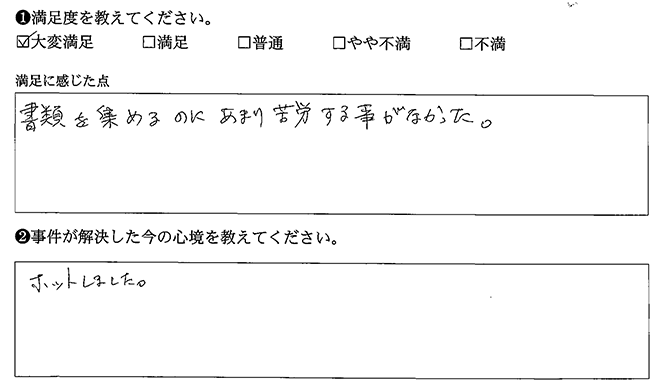 ❶満足度を教えてください。
☑大変満足 □満足 □普通 □やや不満 □不満
満足に感じた点
書類を集めるのにあまり苦労する事がなかった。
❷事件が解決した今の心境を教えてください。
ホットしました。